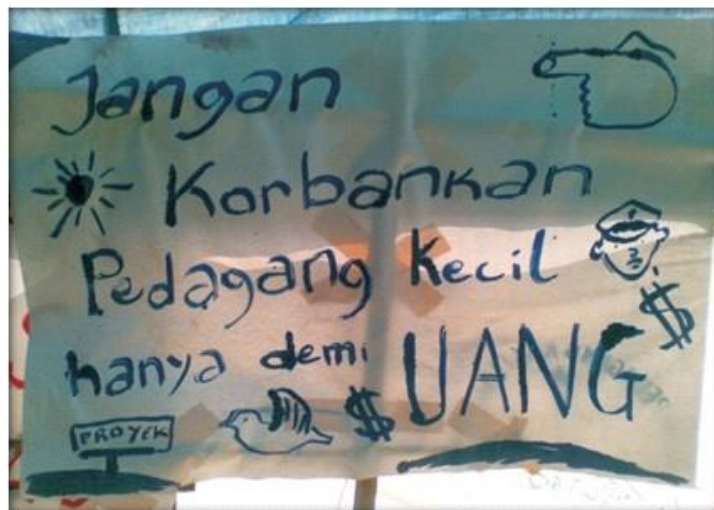 Jangan
Korbankan
Pedagang Kecil
hanya demi UANG
$
PROYEK
$